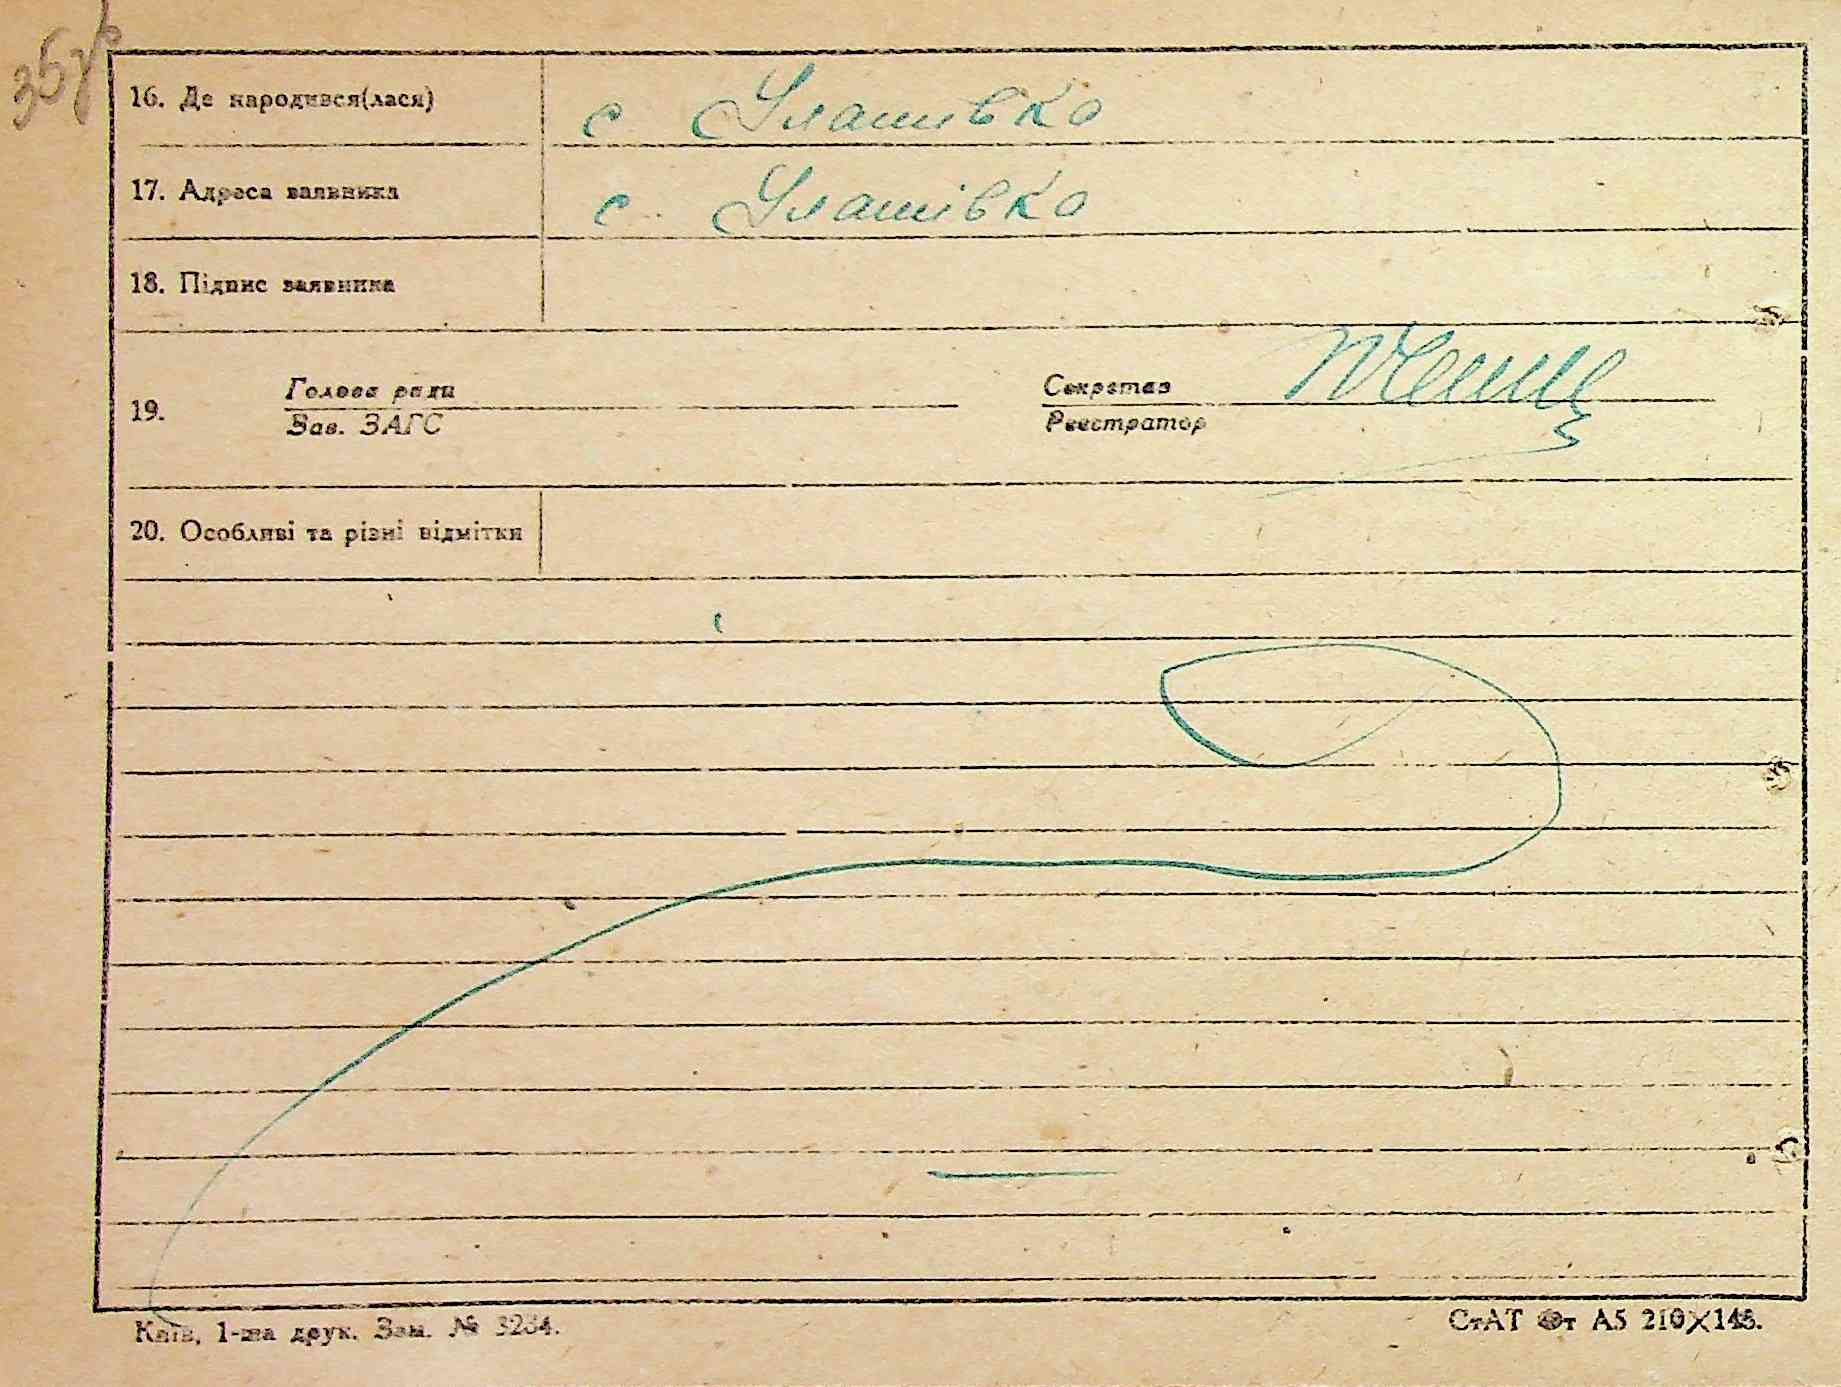 16. Де народився(лася) с Улашивка
17. Адреса заявника с. Улашівка
18. Підпис заявника
Голова ради Секретар
19.
Зав. ЗАГС Реєстратор
20. Особливі та різні відмітки
Київ, 1-ша друк. Зам. № 3234. СтАТ Фт А5 210×148.